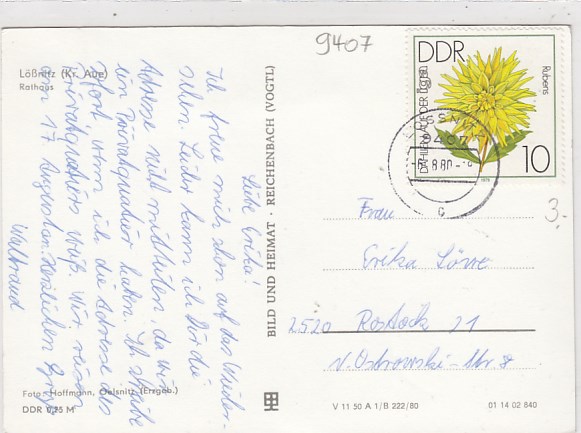 9407
Lößnitz (Kr. Aue)
Rathaus
Liebe Erika!
Ich freue mich schon auf das Wieder-
sehen. Leider kann ich Dir die
Adresse nicht mitteilen, da wir
ein Privatquartier haben. Ich schreibe
sofort wenn ich die Adresse des
Privatquartiers weiß. Wir reisen
am 17. Herzlichen Gruß
Waltraud
Foto: Hoffmann, Oelsnitz (Erzgeb.)
DDR 0,25 M
BILD UND HEIMAT · REICHENBACH (VOGTL)
DDR
Rubens
DAHLIEN AUF DER
10
1979
9407
-8.80-
c
3.-
Frau
Erika
2520 Rostock 21
N.-Ostrowski-Str. 8
V 11 50 A 1/B 222/80
01 14 02 840